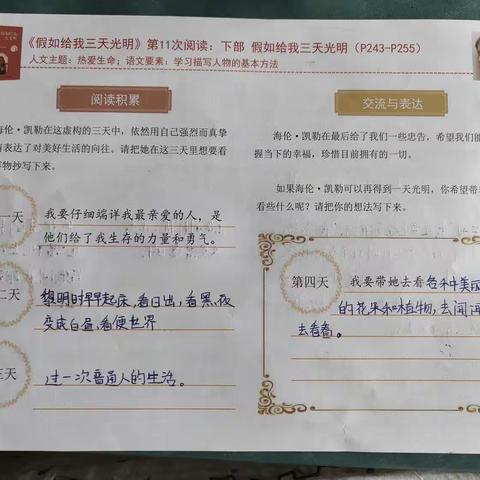 《假如给我三天光明》第11次阅读：下部 假如给我三天光明（P243-P255）
人文主题：热爱生命；语文要素：学习描写人物的基本方法
阅读积累
海伦·凯勒在这虚构的三天中，依然用自己强烈而真挚
表达了对美好生活的向往。请把她在这三天里想要看
物抄写下来。
一天
我要仔细端详我最亲爱的人，是
他们给了我生存的力量和勇气。
二天
黎明时早早起床，看日出，看黑夜
变成白昼，看便世界
三天
过一次普通人的生活。
交流与表达
海伦·凯勒在最后给了我们一些忠告，希望我们能
握当下的幸福，珍惜目前拥有的一切。
如果海伦·凯勒可以再得到一天光明，你希望带
看些什么呢？请把你的想法写下来。
第四天
我要带她去看各种美丽
的花朵和植物，去闻闻
去看看。